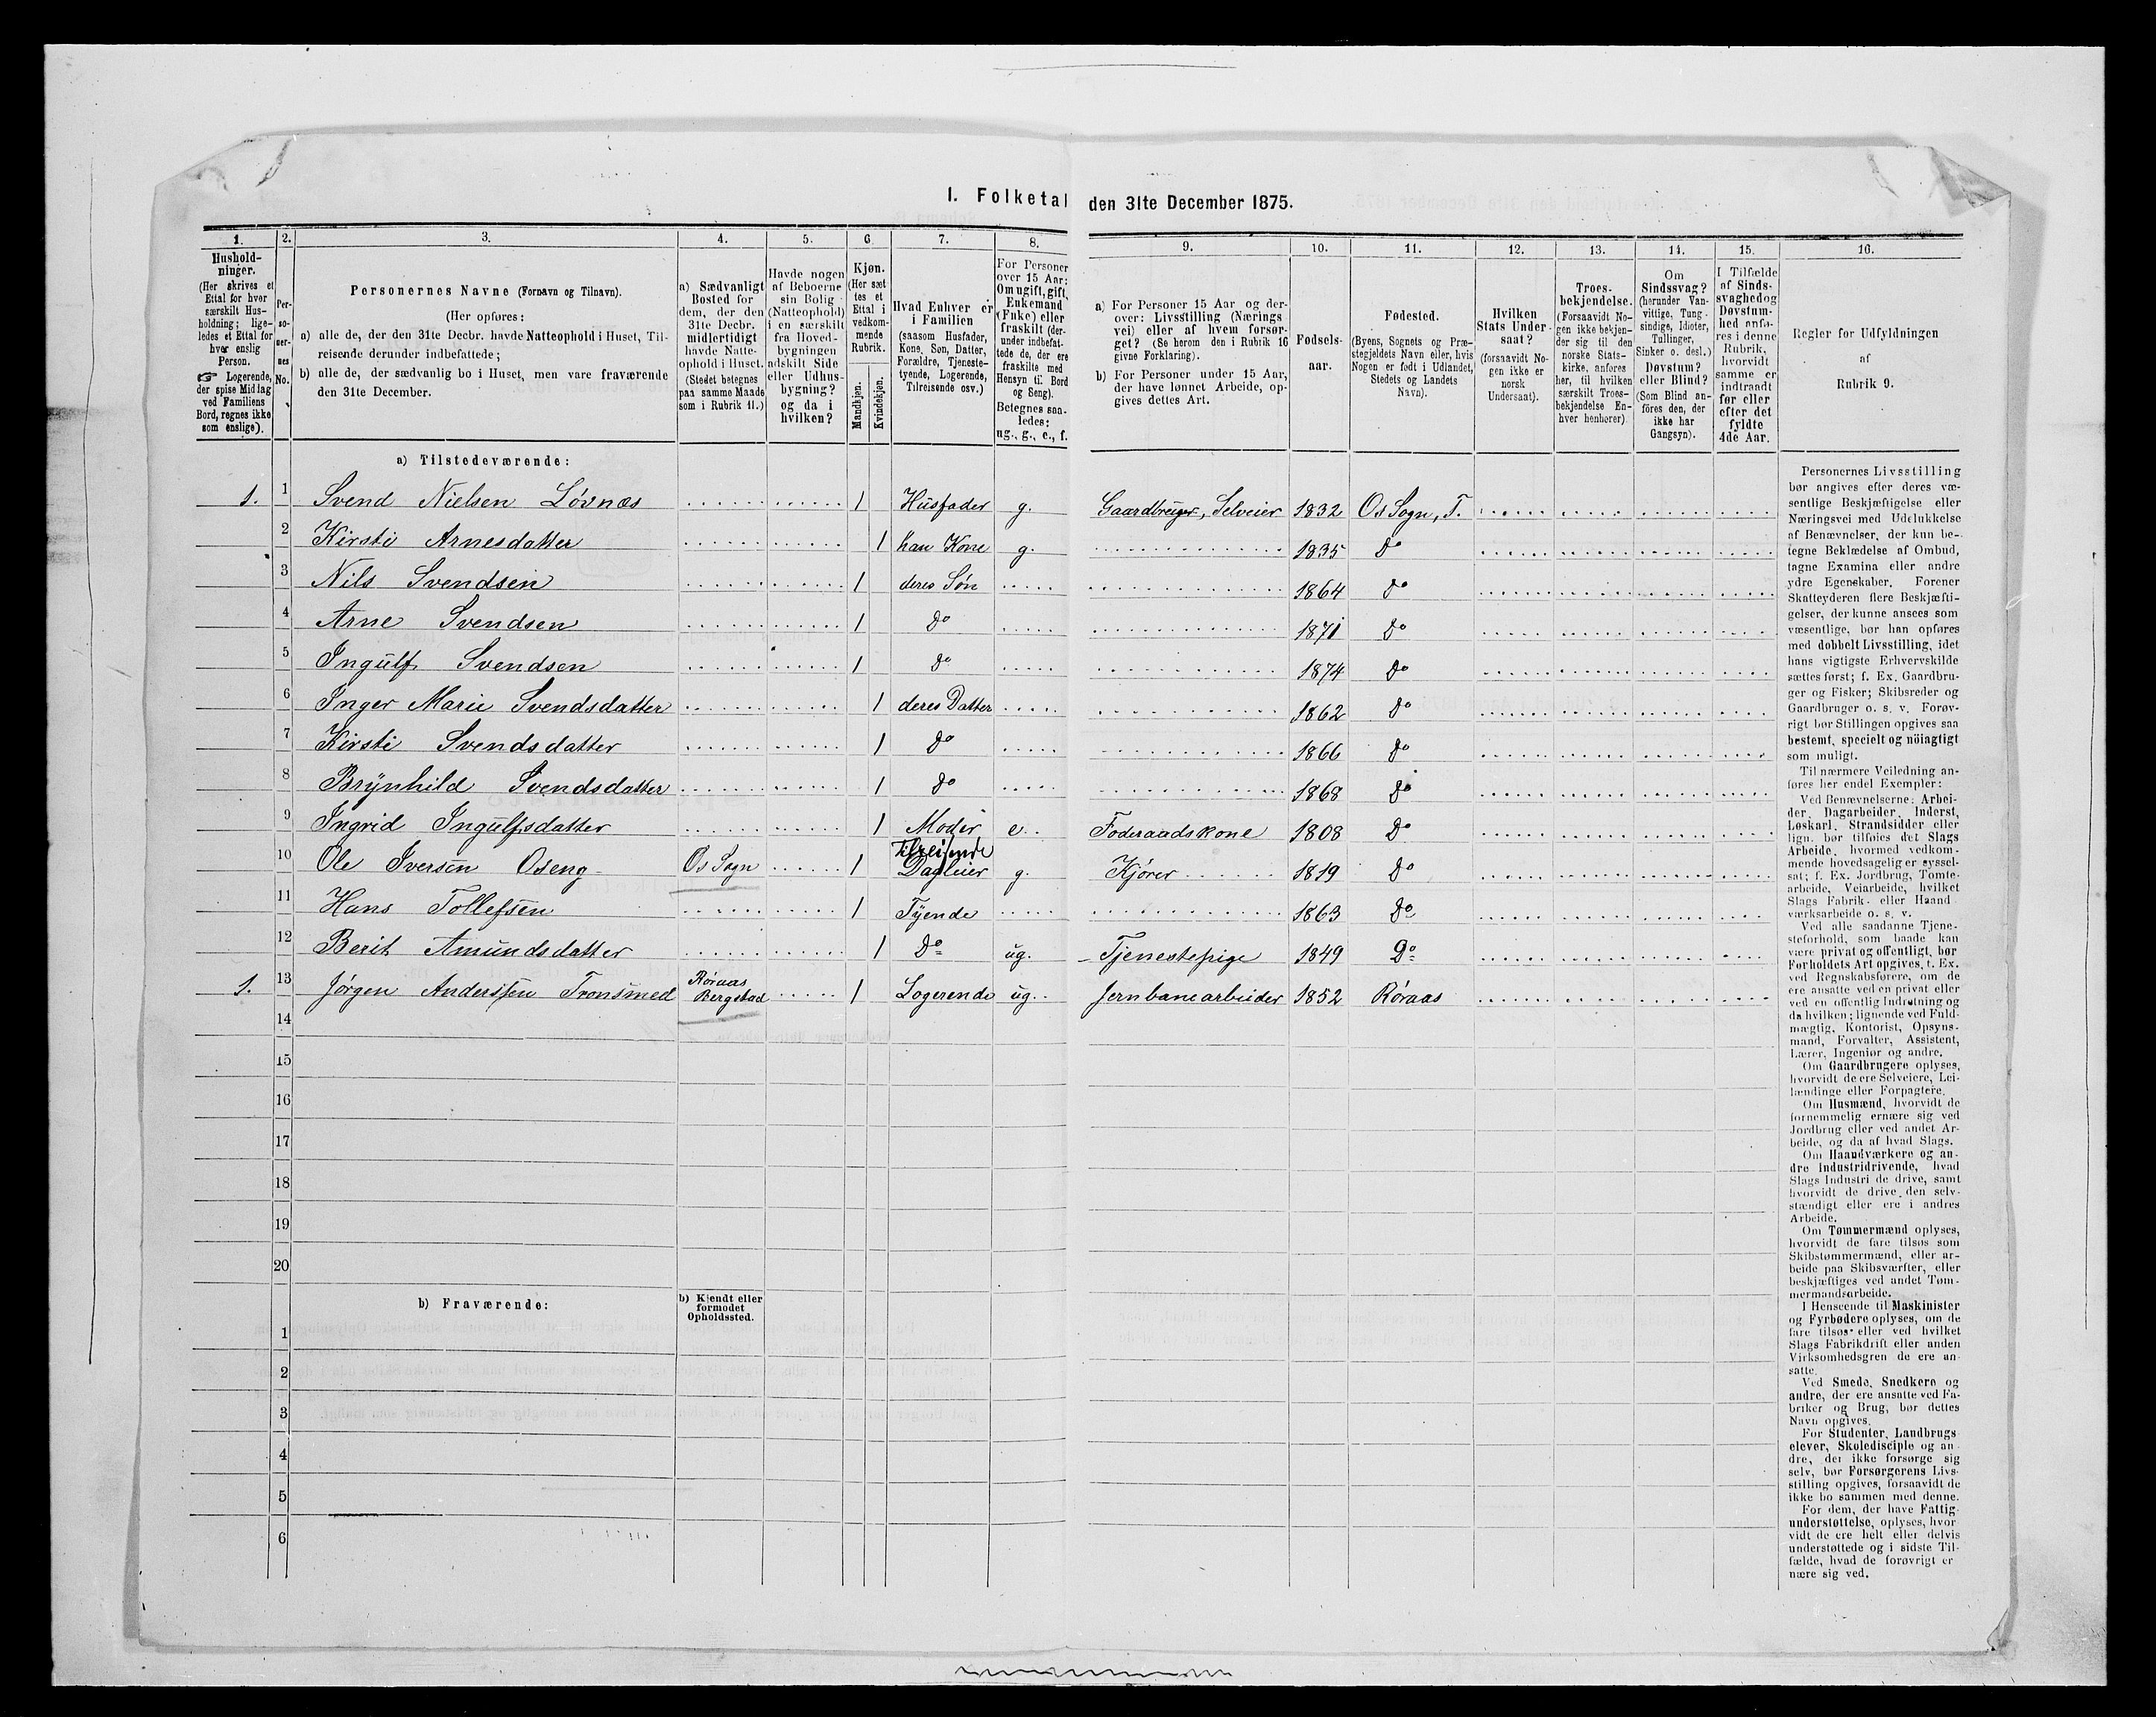 I. Folketal den 31te December 1875.
1.
Hushold-
ninger.
(Her skrives et
Ettal for hver
særskilt Hus-
holdning; lige-
ledes et Ettal for
hver enslig
Person.
☞ Logerende,
der spise Middag
ved Familiens
Bord, regnes ikke
som enslige).
2.
Per-
so-
ner-
nes
No.
3.
Personernes Navne (Fornavn og Tilnavn).
(Her opføres:
a) alle de, der den 31te Decbr. havde Natteophold i Huset, Til-
reisende derunder indbefattede;
b) alle de, der sædvanlig bo i Huset, men vare fraværende
den 31te December.
4.
a) Sædvanligt
Bosted for
dem, der den
31te Decbr.
midlertidigt
havde Natte-
ophold i Huset.
(Stedet betegnes
paa samme Maade
som i Rubrik 11.)
5.
Havde nogen
af Beboerne
sin Bolig
(Natteophold)
i en særskilt
fra Hoved-
bygningen
adskilt Side
eller Udhus-
bygning?
og da i
hvilken?
6.
Kjøn.
(Her sæt
tes et
Ettal i
vedkom-
mende
Rubrik.
Mandkjøn.
Kvindekjøn.
7.
Hvad Enhver er
i Familien
(saasom Husfader,
Kone, Søn, Datter,
Forældre, Tjeneste-
tyende, Logerende,
Tilreisende osv.)
8.
For Personer
over 15 Aar:
Om ugift, gift,
Enkemand
(Enke) eller
fraskilt (der-
under indbefat-
tede de, der ere
fraskilte med
Hensyn til Bord
og Seng).
Betegnes saa-
ledes:
ug., g., e., f.
9.
a) For Personer 15 Aar og der-
over: Livsstilling (Nærings
vei) eller af hvem forsør-
get? (Se herom den i Rubrik 16
givne Forklaring).
b) For Personer under 15 Aar,
der have lønnet Arbeide, op-
gives dettes Art.
10.
Fødsels-
aar.
11.
Fødested.
(Byens, Sognets og Præ-
stegjeldets Navn eller, hvis
Nogen er født i Udlandet,
Stedets og Landets
Navn).
12.
Hvilken
Stats Under-
saat?
(forsaavidt No-
gen ikke er
norsk
Undersaat).
13.
Troes-
bekjendelse.
(Forsaavidt No-
gen ikke bekjen-
der sig til den
norske Stats-
kirke, anføres
her, til hvilken
særskilt Troes-
bekjendelse En-
hver henhører).
14.
Om
Sindssvag?
(herunder Van-
vittige, Tung-
sindige, Idioter,
Tullinger,
Sinker o. desl.)
Døvstum?
eller Blind?
(Som Blind an-
føres den, der
ikke har
Gangsyn).
15.
I Tilfælde
af Sinds-
svaghed og
Døvstum-
hed anfø-
res i denne
Rubrik,
hvorvidt
samme er
indtraadt
før eller
efter det
fyldte
4de Aar.
16.
Regler for Udfyldningen
af
Rubrik 9.
a) Tilstedeværende:
1. 1 Svend Nielsen Løvnæs 1 Husfader g. Gaardbruger, Selveier 1832 Os Sogn, T.
2 Kirsti Arnesdatter 1 han Kone g. 1835 Do
3 Nils Svendsen 1 deres Søn 1864 Do
4 Arne Svendsen 1 Do 1871 Do
5 Ingulf Svendsen 1 Do 1874 Do
6 Inger Marie Svendsdatter 1 deres Datter 1862 Do
7 Kirsti Svendsdatter 1 Do 1866 Do
8 Brynhild Svendsdatter 1 Do 1868 Do
9 Ingrid Ingulfsdatter 1 Moder e. Føderaadskone 1808 Do
Tilreisende
10 Ole Iversen Oseng Os Sogn 1 g. Kjører 1819 Do
11 Hans Tollefsen 1 Tyende 1863 Do
12 Berit Amundsdatter 1 Do ug. Tjenestepige 1849 Do
1. 13 Jørgen Anderssen Tronsmed Røraas Bergstad 1 Logerende ug. Jernbanearbeider 1852 Røraas
14
15
16
17
18
19
20
b) Fraværende:
b) Kjendt eller
formodet
Opholdssted.
1
2
3
4
5
6
Personernes Livsstilling
bør angives efter deres væ-
sentlige Beskjæftigelse eller
Næringsvei med Udelukkelse
af Benævnelser, der kun be-
tegne Beklædelse af Ombud,
tagne Examina eller andre
ydre Egenskaber. Forener
Skatteyderen flere Beskjæfti-
gelser, der kunne ansees som
væsentlige, bør han opføres
med dobbelt Livsstilling, idet
hans vigtigste Erhvervskilde
sættes først; f. Ex. Gaardbru-
ger og Fisker; Skibsreder og
Gaardbruger o. s. v. Forøv-
rigt bør Stillingen opgives saa
bestemt, specielt og nöiagtigt
som muligt.
Til nærmere Veiledning an-
føres her endel Exempler:
Ved Benævnelserne: Arbei-
der, Dagarbeider, Inderst,
Løskarl, Strandsidder eller
lign. bør tilføies det Slags
Arbeide, hvormed vedkom-
mende hovedsagelig er syssel-
sat; f. Ex. Jordbrug, Tomte-
arbeide, Veiarbeide, hvilket
Slags Fabrik- eller Haand-
værksarbeide o. s. v.
Ved alle saadanne Tjene-
steforhold, som baade kan
være privat og offentligt, bør
Forholdets Art opgives, f. Ex.
ved Regnskabsførere, om de
ere ansatte ved en privat eller
ved en offentlig Indretning og
da hvilken; lignende ved Fuld-
mægtig, Kontorist, Opsyns-
mand, Forvalter, Assistent,
Lærer, Ingeniør og andre.
Om Gaardbrugere oplyses,
hvorvidt de ere Selveiere, Lei-
lændinge eller Forpagtere.
Om Husmænd, hvorvidt de
fornemmelig ernære sig ved
Jordbrug eller ved andet Ar-
beide, og da af hvad Slags.
Om Haandværkere og an-
dre Industridrivende, hvad
Slags Industri de drive, samt
hvorvidt de drive den selv-
stændigt eller ere i andres
Arbeide.
Om Tømmermænd oplyses,
hvorvidt de fare tilsøs som
Skibstømmermænd, eller ar-
beide paa Skibsværfter, eller
beskjæftiges ved andet Tøm-
mermandsarbeide.
I Henseende til Maskinister
og Fyrbødere oplyses, om de
fare tilsøs eller ved hvilket
Slags Fabrikdrift eller anden
Virksomhedsgren de ere an-
satte.
Ved Smede, Snedkere og
andre, der ere ansatte ved Fa-
briker og Brug, bør dettes
Navn opgives.
For Studenter, Landbrugs-
elever, Skoledisciple og an-
dre, der ikke forsørge sig
selv, bør Forsørgerens Livs-
stilling opgives, forsaavidt de
ikke bo sammen med denne.
For dem, der have Fattig-
understøttelse, oplyses, hvor-
vidt de ere helt eller delvis
understøttede og i sidste Til-
fælde, hvad de forøvrigt er-
nære sig ved.